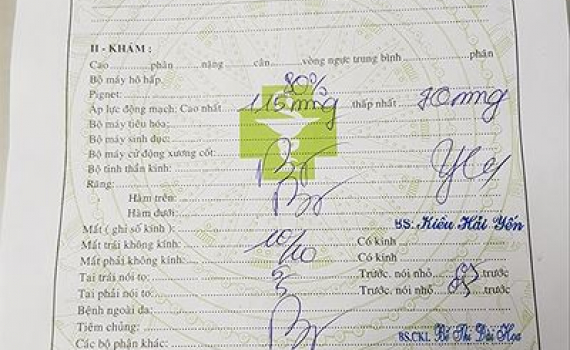 II - KHÁM :
Cao phân nặng cân vòng ngực trung bình phân
Bộ máy hô hấp.
Pignet: 80%
Áp lực động mạch: Cao nhất 115 mmg thấp nhất 70 mmg
Bộ máy tiêu hóa:
Bộ máy sinh dục:
Bộ máy cử động xương cốt: Br
Bộ tinh thần kinh:
Răng: Br
Hàm trên:
Hàm dưới:
BS: Kiều Hải Yến
Mắt ( ghi số kính ):
Mắt trái không kính: 10/10 Có kính
Mắt phải không kính: Có kính
Tai trái nói to: 5 Trước. nói nhỏ trước
Tai phải nói to: Trước. nói nhỏ trước
Bệnh ngoài da:
Tiêm chủng: Br
Các bộ phận khác:
BS.CKI. Thị